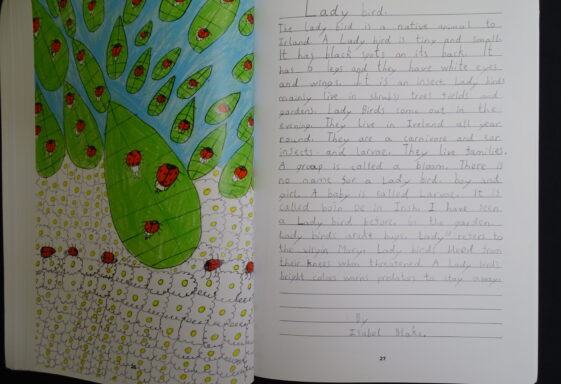 Lady bird.
The lady bird is a native animal to
Irland A Lady bird is tiny and small.
It has black spots on its back. It
has 6 legs and they have white eyes
and wings. It is an insect Lady birds
mainly live in shrubs trees fields and
gardens. Lady Birds come out in the
evening. They live in Ireland all year
round. They are a carnivore and eat
insects and larvae. They live families.
A group is called a bloom. There is
no name for a Lady bird boy and
girl. A baby is called Larvae. It is
called bóín Dé in Irish. I have seen
a Lady bird before in the garden.
Lady birds arent huge. Lady refers to
the virgin Mary. Lady birds bleed from
their knees when threatened. A Lady birds
bright colors warns predators to stay
By
Isabel Blake.
26
27